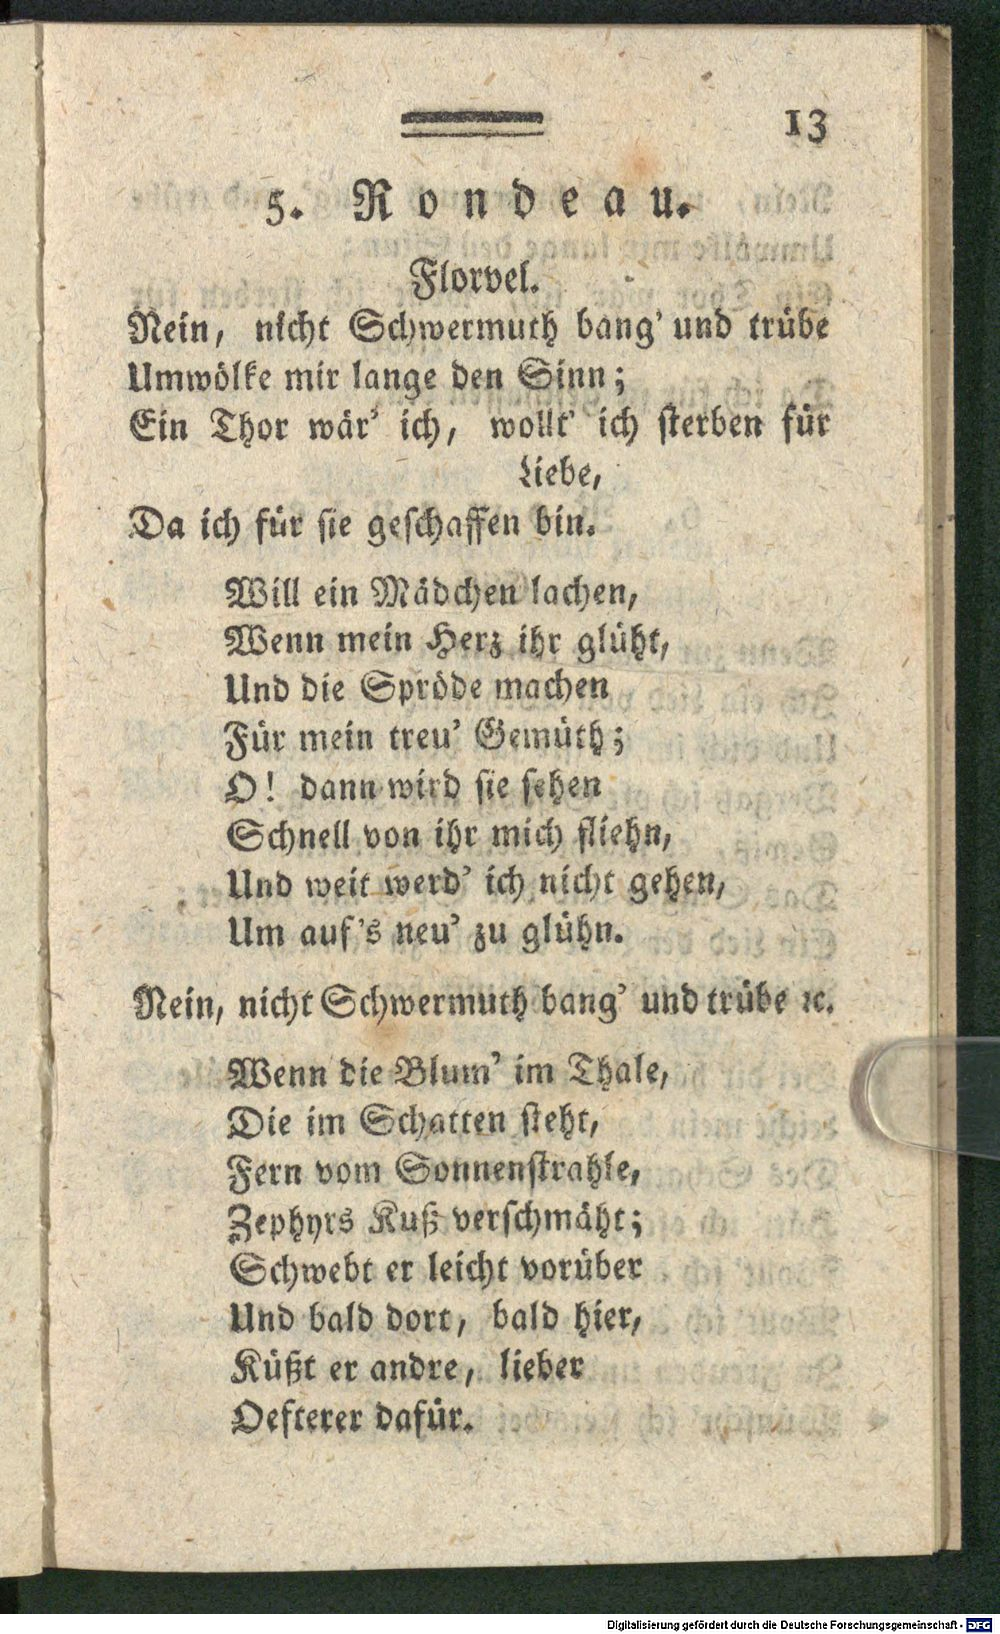 13
5. Rondeau.
Florvel.
Nein, nicht Schwermuth bang' und trübe
Umwölke mir lange den Sinn;
Ein Thor wär' ich, wollt' ich sterben für
Liebe,
Da ich für sie geschaffen bin.
Will ein Mädchen lachen,
Wenn mein Herz ihr glüht,
Und die Spröde machen
Für mein treu' Gemüth;
O! dann wird sie sehen
Schnell von ihr mich fliehn,
Und weit werd' ich nicht gehen,
Um auf's neu' zu glühn.
Nein, nicht Schwermuth bang' und trübe ꝛc.
Wenn die Blum' im Thale,
Die im Schatten steht,
Fern vom Sonnenstrahle,
Zephyrs Kuß verschmäht;
Schwebt er leicht vorüber
Und bald dort, bald hier,
Küßt er andre, lieber
Oefterer dafür.
Digitalisierung gefördert durch die Deutsche Forschungsgemeinschaft - DFG